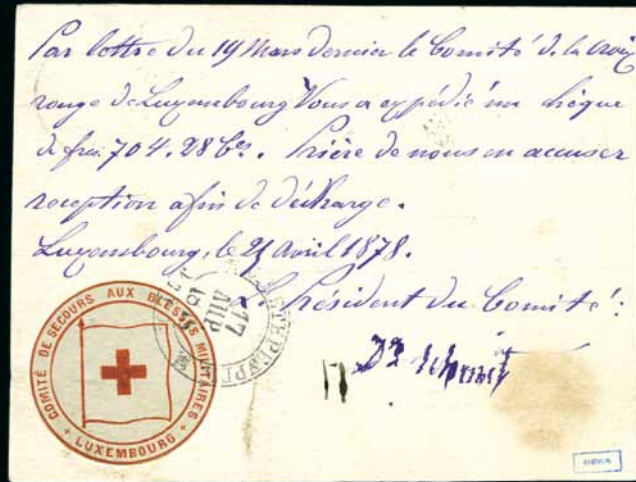 Par lettre du 19 Mars dernier le Comité de la croix
rouge de Luxembourg Vous a expédié un chèque
de frs. 704.28 Cs. Prière de nous en accuser
reception afin de décharge.
Luxembourg, le 21 avril 1878.
Le Président du Comité:
Dr Schmit
COMITÉ DE SECOURS AUX BLESSÉS MILITAIRES
LUXEMBOURG
17
АПР